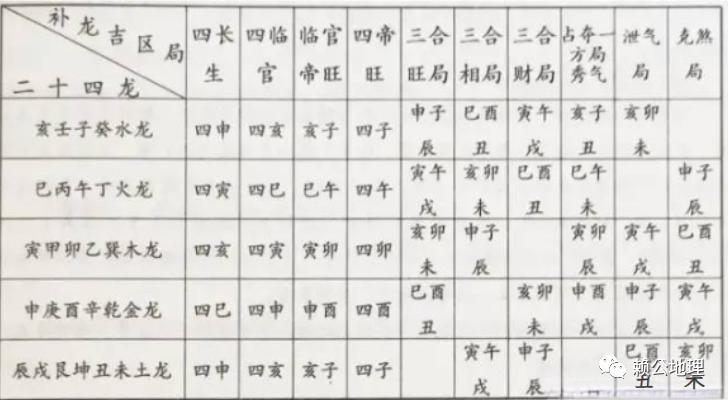 补龙吉区局
二十四龙
四长生 四临官 临官帝旺 四帝旺 三合旺局 三合相局 三合财局 占夺一方局秀气 泄气局 克煞局
亥壬子癸水龙 四申 四亥 亥子 四子 申子辰 巳酉丑 寅午戌 亥子丑 亥卯未
巳丙午丁火龙 四寅 四巳 巳午 四午 寅午戌 亥卯未 巳酉丑 巳午未 申子辰
寅甲卯乙巽木龙 四亥 四寅 寅卯 四卯 亥卯未 申子辰 寅卯辰 寅午戌 巳酉丑
申庚酉辛乾金龙 四巳 四申 申酉 四酉 巳酉丑 亥卯未 申酉戌 申子辰 寅午戌
辰戌艮坤丑未土龙 四申 四亥 亥子 四子 寅午戌 申子辰 巳酉丑 亥卯未
赖公地理